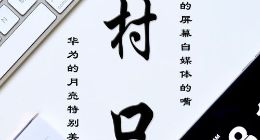 的屏幕自媒体的嘴
村
华为的月亮特别美